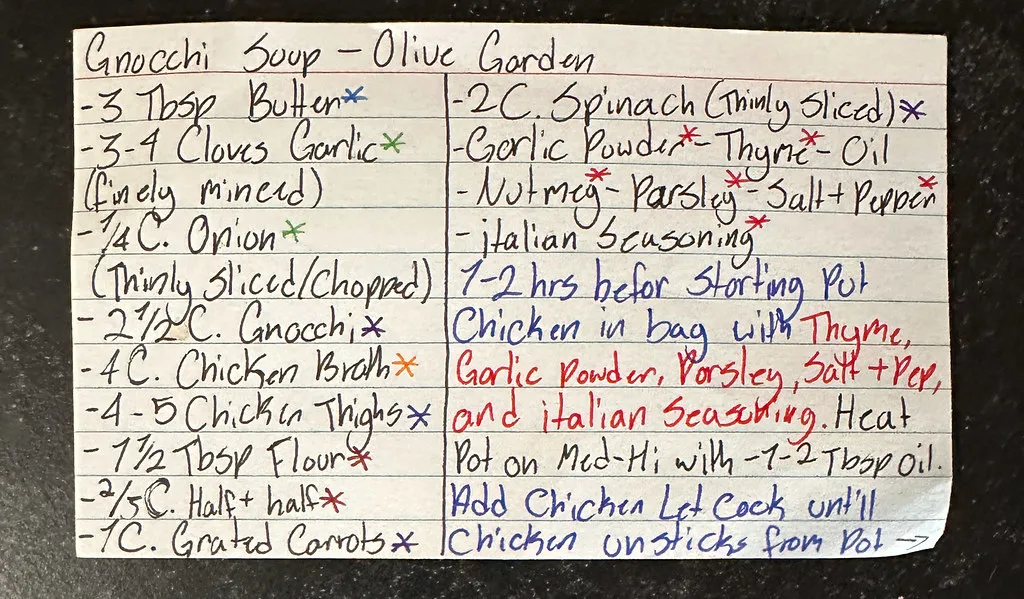 Gnocchi Soup - Olive Garden
-3 Tbsp Butter*
-3-4 Cloves Garlic*
(finely minced)
-1/4 C. Onion*
(Thinly Sliced/Chopped)
-2 1/2 C. Gnocchi*
-4 C. Chicken Broth*
-4-5 Chicken Thighs*
-1 1/2 Tbsp Flour*
-2/3 C. Half + half*
-1 C. Grated Carrots*
-2 C. Spinach (Thinly Sliced)*
-Garlic Powder*- Thyme*- Oil
-Nutmeg*- Parsley*- Salt + Pepper*
- italian Seasoning*
1-2 hrs befor Starting Put
Chicken in bag with Thyme,
Garlic Powder, Parsley, Salt + Pep,
and italian Seasoning. Heat
Pot on Med-Hi with -1-2 Tbsp Oil.
Add Chicken Let Cook untill
Chicken unsticks from Pot →